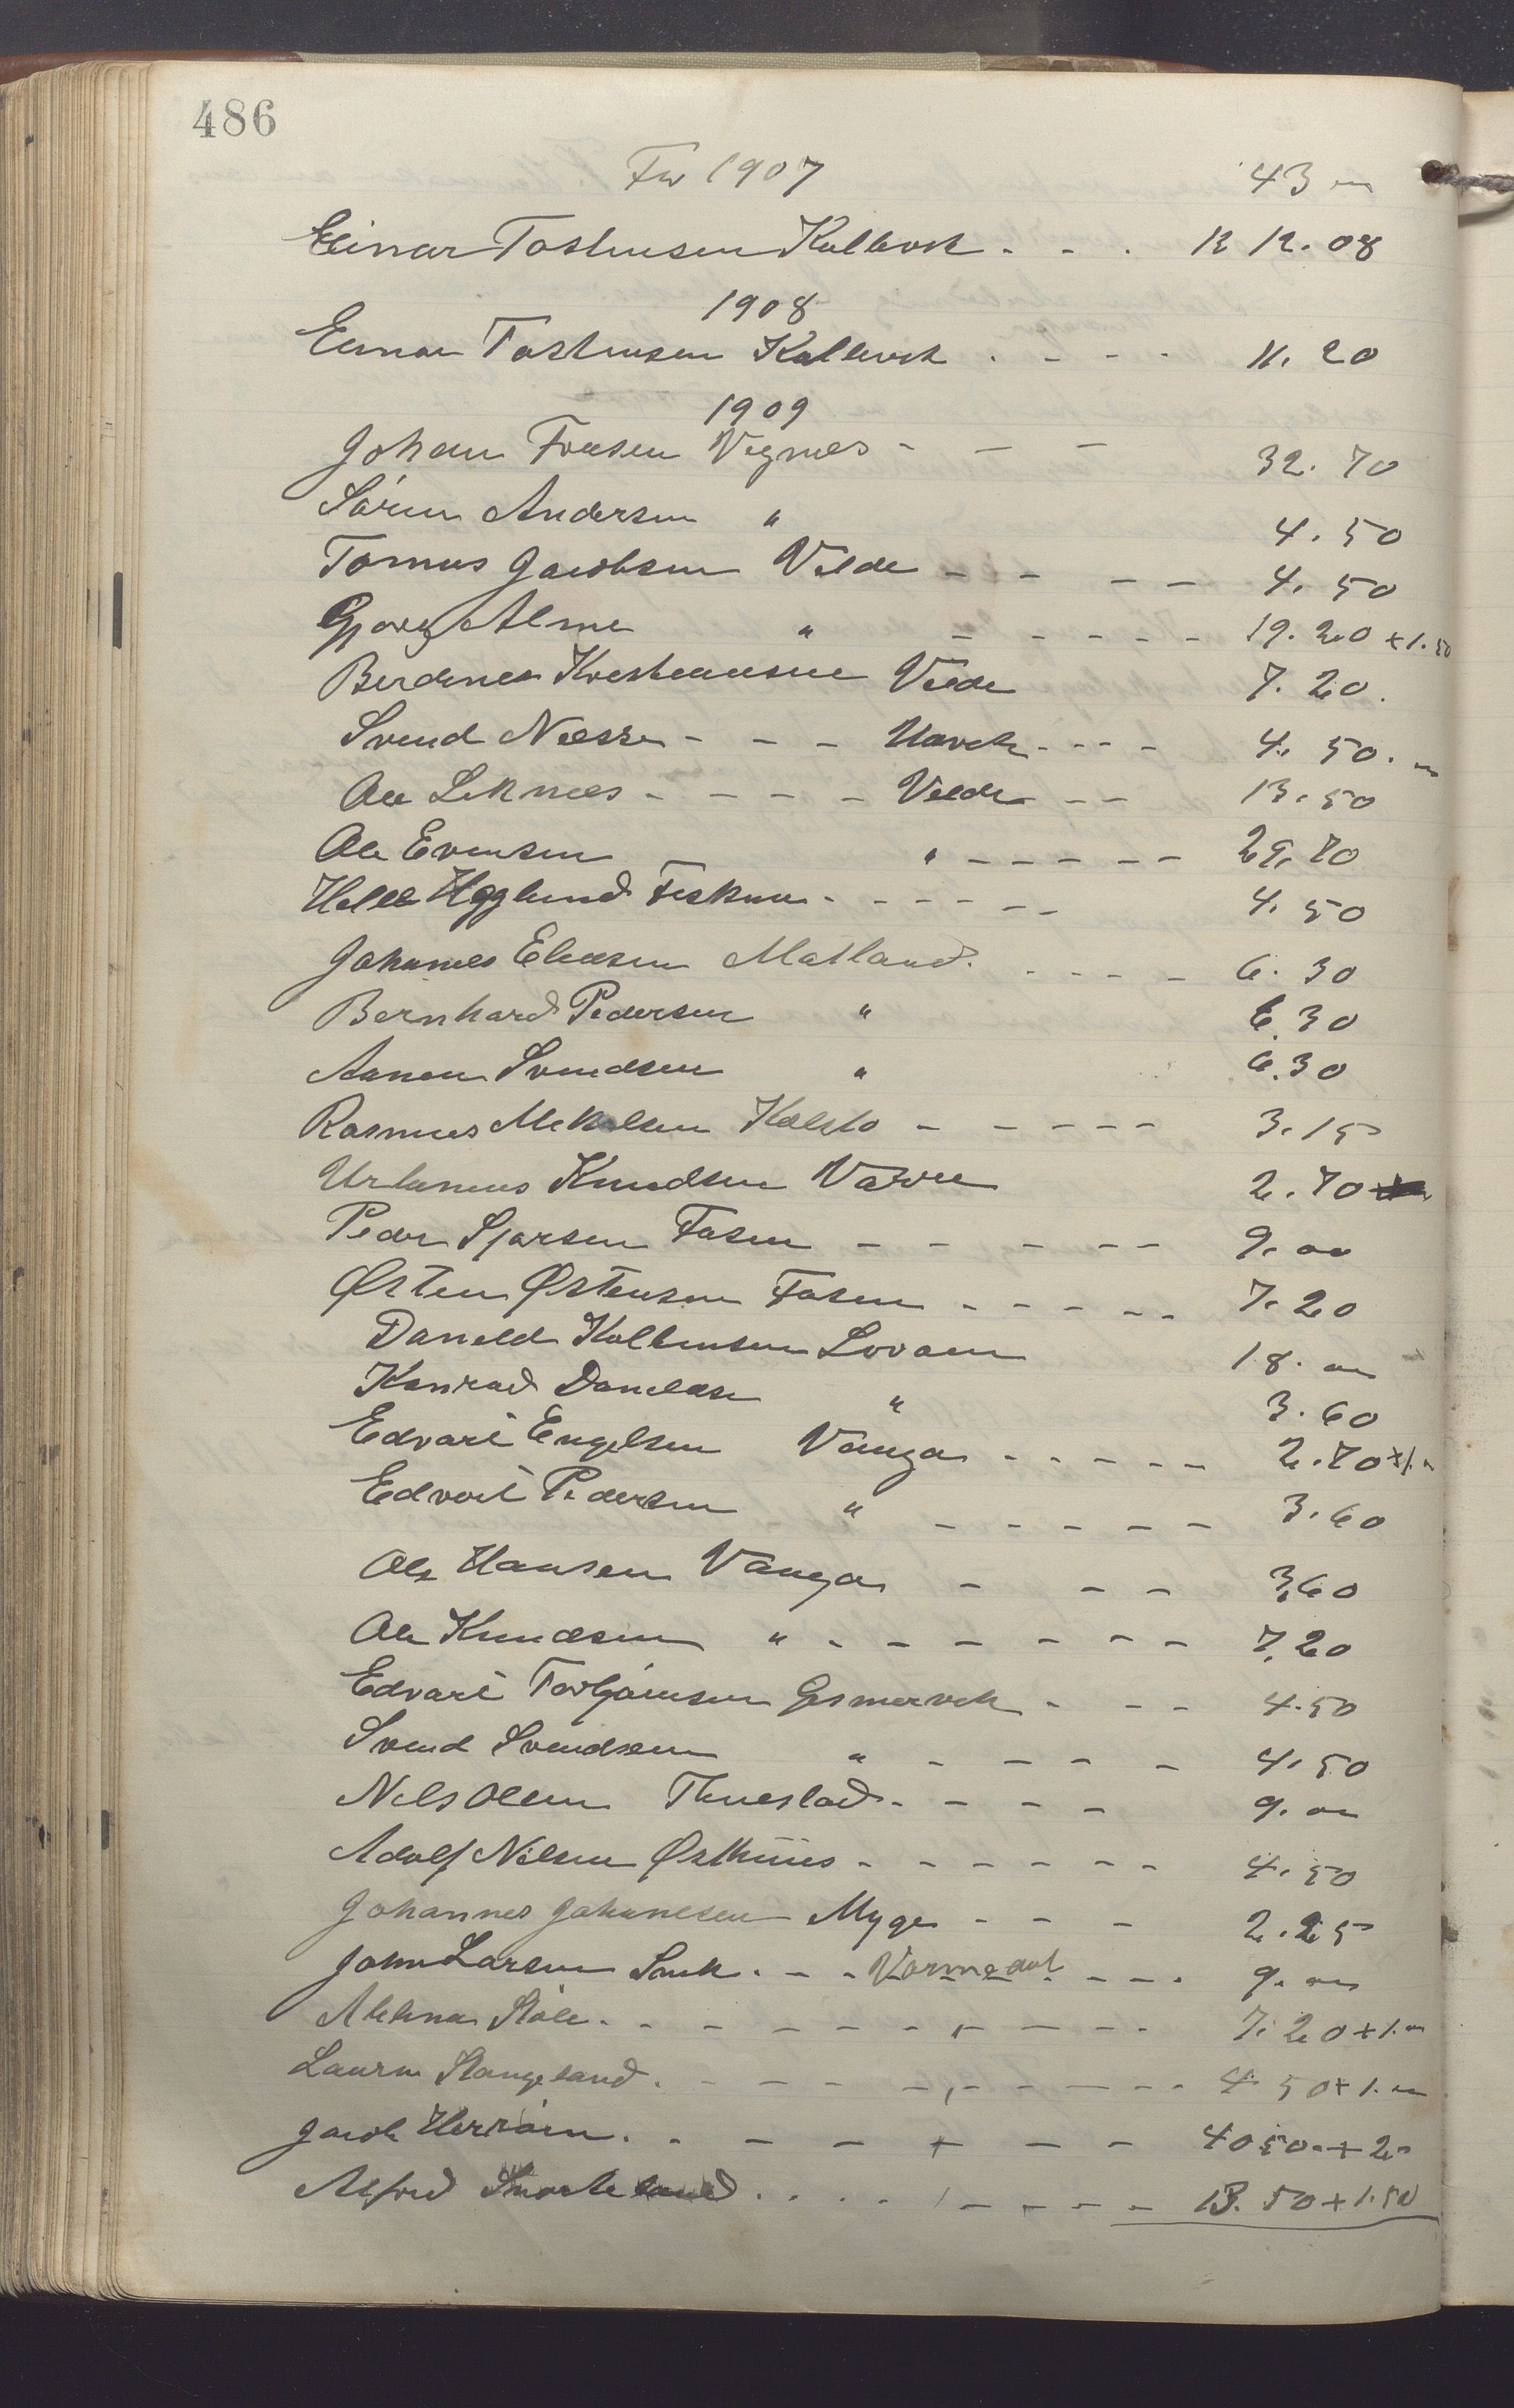 486
For 1907 43 "
Einar Tostensen Kallevik - - . K 12. 08
1908
Einar Tostensen Kallevik . - - - 11. 20
1909
Johan Foesen Vignes - - - 32. 70
Søren Andersen " 4. 50
Tomas Jacobsen Velde - - - - 4. 50
Gjørg Alme " - - - - - 19. 20 + 1.50
Berdines Kristiansen Velde 7. 20.
Svend Næsse - - - Narvik - - - 4. 50. "
Ole Leknes - - - - Velde - - 13. 50
Ole Evensen " - - - - - 29. 70
Helle Hegglund Feskum - - - - - - 4. 50
Johannes Eliasen Matland. . - - - 6. 30
Bernhard Pedersen " 6. 30
Aanen Svendsen " 6. 30
Rasmus Mekalsen Kolstø - - - - - 3. 15
Urbanus Knudsen Vavre 2. 70
Peder Sjørsen Fosen - - - - - 9. 00
Østen Østensen Fosen - - - - - 7. 20
Daneld Kolbensen Lovaen 18. 00
Konrad Danelsen " 3. 60
Edvart Engelsen Vaaga - - - - - 2. 70 + 1. "
Edvart Pedersen " - - - - - 3. 60
Ole Hansen Vaaga - - - 3,60
Ole Knudsen " - - - - - - 7,20
Edvart Torbjørnsen Gismervik - - - 4. 50
Svend Svendsen " - - - - 4. 50
Nils Olsen Thuestad - - - - 9. 00
Adolf Nilsen Østhuus - - - - - - 4. 50
Johannes Johanesen Myge - - - 2. 25
John Larsen Sauk . - - Vormedal - - - . 9. 00
Alelena Støle . - - - - - - - - - 7. 20 + 1. "
Laurn Stangeland . - - - - - - - - 4 50 + 1. "
Jacob Herviøen . - - - + - - 40 50. + 2 "
Alfred . . . . - - - - 13. 50 + 1.50